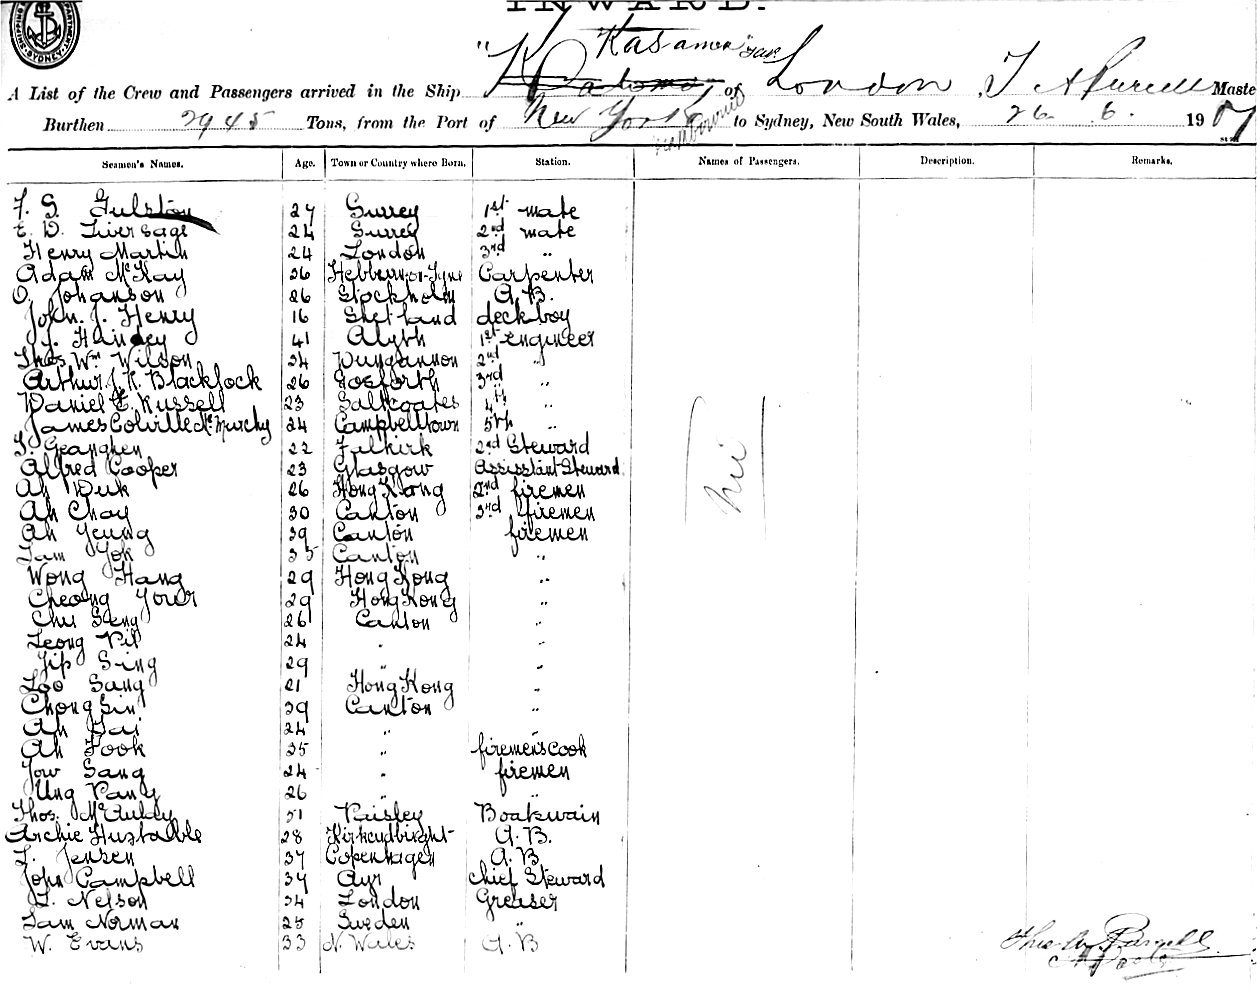 INWARD.
SHIPPING DEPARTMENT SYDNEY
"Kasamea"
A List of the Crew and Passengers arrived in the Ship of London, T A Purcell Maste
Burthen 2945 Tons, from the Port of New York to Sydney, New South Wales, 26 6. 1907
Seamen's Names. Age. Town or Country where Born. Station. Names of Passengers. Description. Remarks.
F. S. Gulston 27 Surrey 1st mate
E. D. Liversage 24 Surrey 2nd mate
Henry Martin 24 London 3rd "
Adam McKay 36 Hebburn-on-Tyne Carpenter
O. Johanson 26 Stockholm A.B.
John. J. Henry 16 Shetland deck boy
41 Alyth 1st engineer
Thos. Wm Wilson 34 Dungannon 2nd "
Arthur J. K. Blacklock 26 Gosforth 3rd "
Daniel E. Russell 23 Saltcoates 4th "
James Colville McMurchy 24 Campbelltown 5th "
T. Geanghen 22 Falkirk 2nd Steward
Alfred Cooper 23 Glasgow Assisstant Steward
Ah Duk 26 Hong Kong 2nd firemen
Ah Choy 30 Canton 3rd firemen
Ah Yeung 39 Canton firemen
Tam Yok 35 Canton "
Wong Hang 29 Hong Kong "
Cheong Yower 29 Hong Kong "
Chu Seng 26 Canton "
Leong Pil 24 " "
Yip Sing 29 " "
Loo Sang 21 Hong Kong "
Chong Sin 39 Canton "
Ah Tai 24 " "
Ah Fook 35 " firemen's cook
Yow Sang 24 " firemen
Ung Pang 26 " "
Thos. McAulay 51 Paisley Boatswain
Archie Hustable 28 Kirkcudbright A.B.
L. Jensen 37 Copenhagen A.B
John Campbell 34 Ayr chief Steward
L. Nelson 34 London Greaser
Sam Norman 25 Sweden "
W. Evans 33 N. Wales A.B
Nil